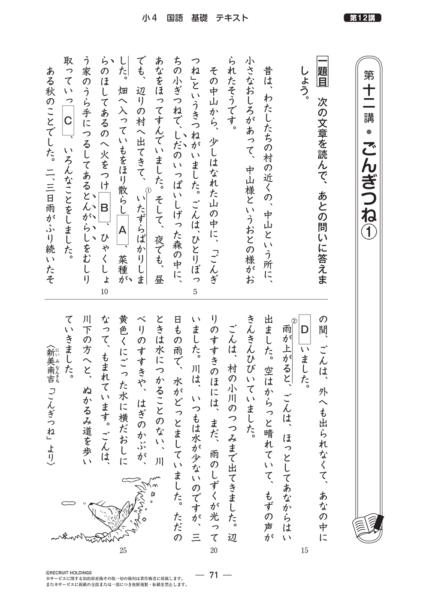 小4 国語 基礎 テキスト
第12講
第十二講●ごんぎつね①
一題目 次の文章を読んで、あとの問いに答えま
しょう。
昔は、わたしたちの村の近くの、中山という所に、
小さなおしろがあって、中山様というおとの様がお
られたそうです。
その中山から、少しはなれた山の中に、「ごんぎ
つね」というきつねがいました。ごんは、ひとりぼっ
ちの小ぎつねで、しだのいっぱいしげった森の中に、
あなをほってすんでいました。そして、夜でも、昼
でも、辺りの村へ出てきて、①いたずらばかりしま
した。畑へ入っていもをほり散らし A 、菜種が
らのほしてあるのへ火をつけ B 、ひゃくしょ
う家のうら手につるしてあるとんがらしをむしり
取っていっ C 、いろんなことをしました。
ある秋のことでした。二、三日雨がふり続いたそ
の間、ごんは、外へも出られなくて、あなの中に
D いました。
②雨が上がると、ごんは、ほっとしてあなからはい
出ました。空はからっと晴れていて、もずの声が
きんきんひびいていました。
ごんは、村の小川のつつみまで出てきました。辺
りのすすきのほには、まだ、雨のしずくが光って
いました。川は、いつもは水が少ないのですが、三
日もの雨で、水がどっとましていました。ただの
ときは水につかることのない、川べりのすすきや、はぎのかぶが、
黄色くにごった水に横だおしに
なって、もまれています。ごんは、
川下の方へと、ぬかるみ道を歩い
ていきました。
〈新美南吉「ごんぎつね」より〉
5
10
15
20
25
©RECRUIT HOLDINGS
※サービスに関する知的財産権その他一切の権利は著作権者に帰属します。
また本サービスに掲載の全部または一部につき無断複製・転載を禁止します。
― 71 ―